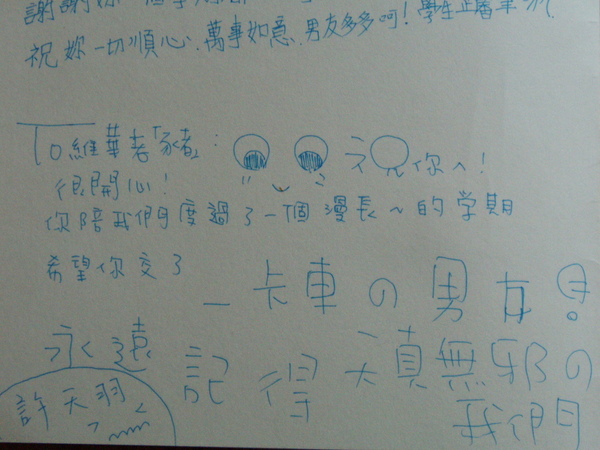 謝謝你一個
祝妳一切順心、萬事如意、男友多多呵!學生
To維華老「豬」:
你ㄟ!
很開心!
你陪我們度過了一個漫長~的学期
希望你交了
一卡車の男友!
永遠
記得天真無邪の
我們
許天羽